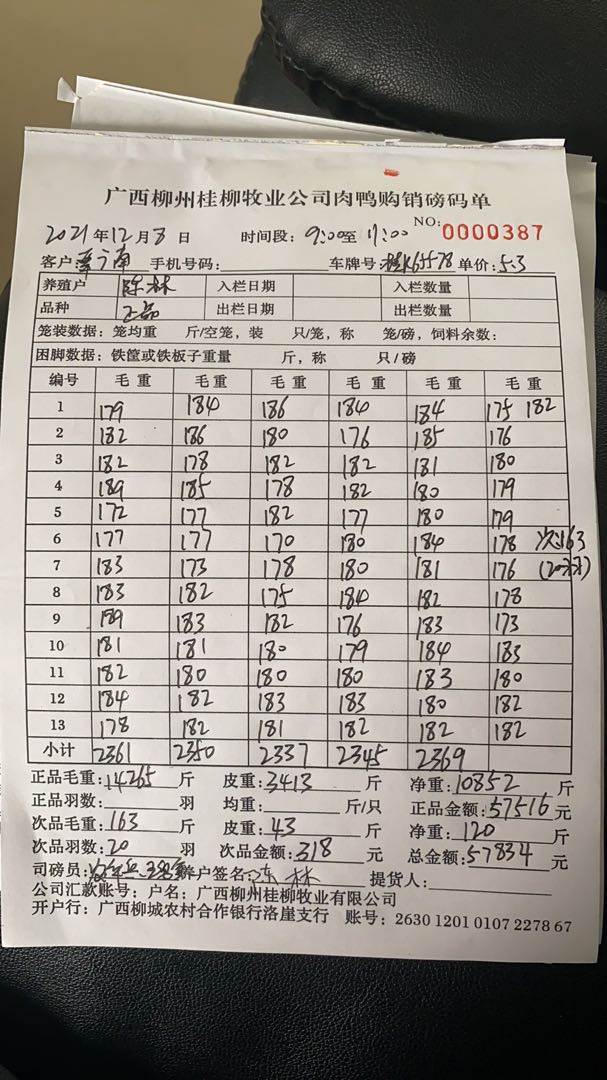 广西柳州桂柳牧业公司肉鸭购销磅码单
2021年12月8日 时间段:9:00至11:00 NO:0000387
客户 手机号码: 车牌号:桂K65578 单价:5.3
养殖户 陈林 入栏日期 入栏数量
品种 正品 出栏日期 出栏数量
笼装数据:笼均重 斤/空笼,装 只/笼,称 笼/磅,饲料余数:
困脚数据:铁筐或铁板子重量 斤,称 只/磅
编号 毛重 毛重 毛重 毛重 毛重 毛重
1 179 184 186 184 184 175 182
2 182 186 180 176 185 176
3 182 178 182 182 181 180
4 189 185 178 182 180 179
5 172 177 182 177 180 179
6 177 177 170 180 184 178 次163
7 183 173 178 180 181 176 (20羽)
8 183 182 175 184 182 178
9 189 183 182 176 183 173
10 181 181 180 179 184 183
11 182 180 180 180 183 180
12 184 182 183 183 180 182
13 178 182 181 182 182 182
小计 2361 2350 2337 2345 2369
正品毛重:14265斤 皮重:3413斤 净重:10852斤
正品羽数: 羽 均重: 斤/只 正品金额:57516元
次品毛重:163斤 皮重:43斤 净重:120斤
次品羽数:20羽 次品金额:318元 总金额:57834元
司磅员: 户签名:陈林 提货人:
公司汇款账号:户名:广西柳州桂柳牧业有限公司
开户行:广西柳城农村合作银行洛崖支行 账号:2630 1201 0107 2278 67